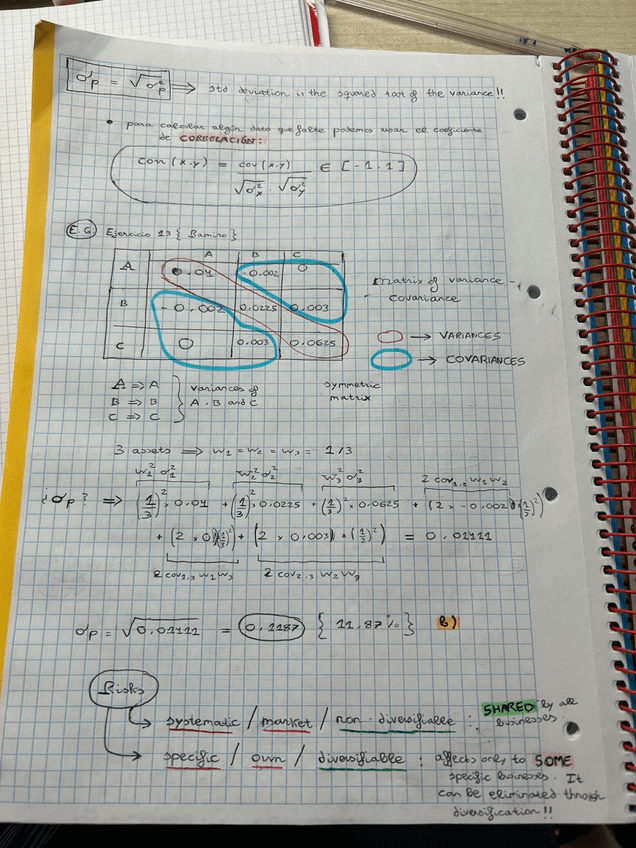 σp = √σp² ⇒ Std deviation is the squared root of the variance!!
• para calcular algún dato que falte podemos usar el coeficiente
de CORRELACIÓN:
corr (x,y) = cov (x,y) / √σx² · √σy² ∈ [-1,1]
E.G. Ejercicio 13
A B C
A 0.04 -0.002 0
B -0.002 0.0225 0.003
C 0 0.003 0.0625
Matrix of variance -
- covariance
→ VARIANCES
→ COVARIANCES
A ⇒ A
B ⇒ B
C ⇒ C
variances of
A, B and C
symmetric
matrix
3 assets ⇒ w1 = w2 = w3 = 1/3
w1² σ1² w2² σ2² w3² σ3² 2 cov1,2 w1 w2
¿σp? ⇒ (1/3)² × 0.04 + (1/3)² × 0.0225 + (1/3)² × 0.0625 + (2 × -0.002)(1/3)²)
+ (2 × 0)(1/3)²) + (2 × 0.003) × (1/3)²) = 0.01411
2 cov1,3 w1 w3 2 cov2,3 w2 w3
σp = √0.01411 = 0.1187 { 11.87% } b)
Risks
systematic / market / non-diversifiable : SHARED by all
businesses.
specific / own / diversifiable : affects only to SOME
specific businesses. It
can be eliminated through
diversification!!